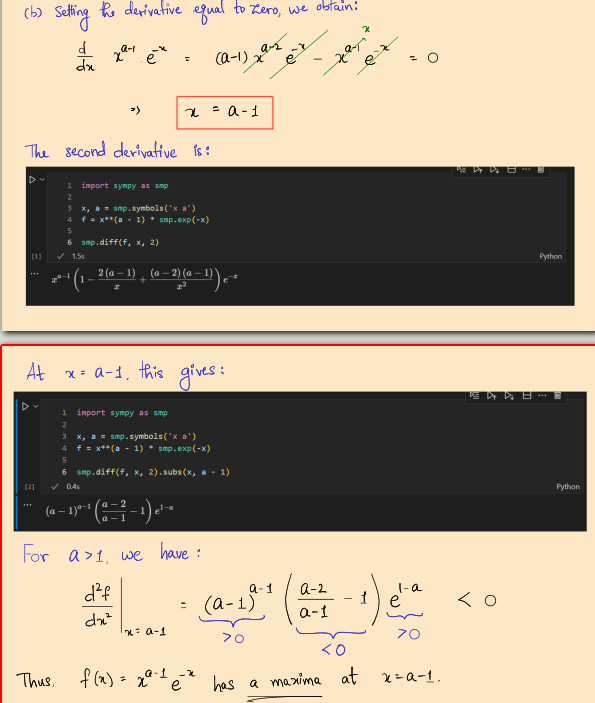 (b) Setting the derivative equal to zero, we obtain:
d/dx x^(a-1) e^(-x) = (a-1) x^(a-2) e^(-x) - x^(a-1) e^(-x) = 0
x
=> x = a-1
The second derivative is:
1 import sympy as smp
2
3 x, a = smp.symbols('x a')
4 f = x**(a - 1) * smp.exp(-x)
5
6 smp.diff(f, x, 2)
[1] ✓ 1.5s Python
... x^(a-1) (1 - 2(a-1)/x + (a-2)(a-1)/x^2) e^(-x)
At x = a-1, this gives:
1 import sympy as smp
2
3 x, a = smp.symbols('x a')
4 f = x**(a - 1) * smp.exp(-x)
5
6 smp.diff(f, x, 2).subs(x, a - 1)
[2] ✓ 0.4s Python
... (a-1)^(a-1) ((a-2)/(a-1) - 1) e^(1-a)
For a>1, we have:
d²f/dx² |_(x=a-1) = (a-1)^(a-1) ((a-2)/(a-1) - 1) e^(1-a) < 0
>0 <0 >0
Thus, f(x) = x^(a-1) e^(-x) has a maxima at x=a-1.